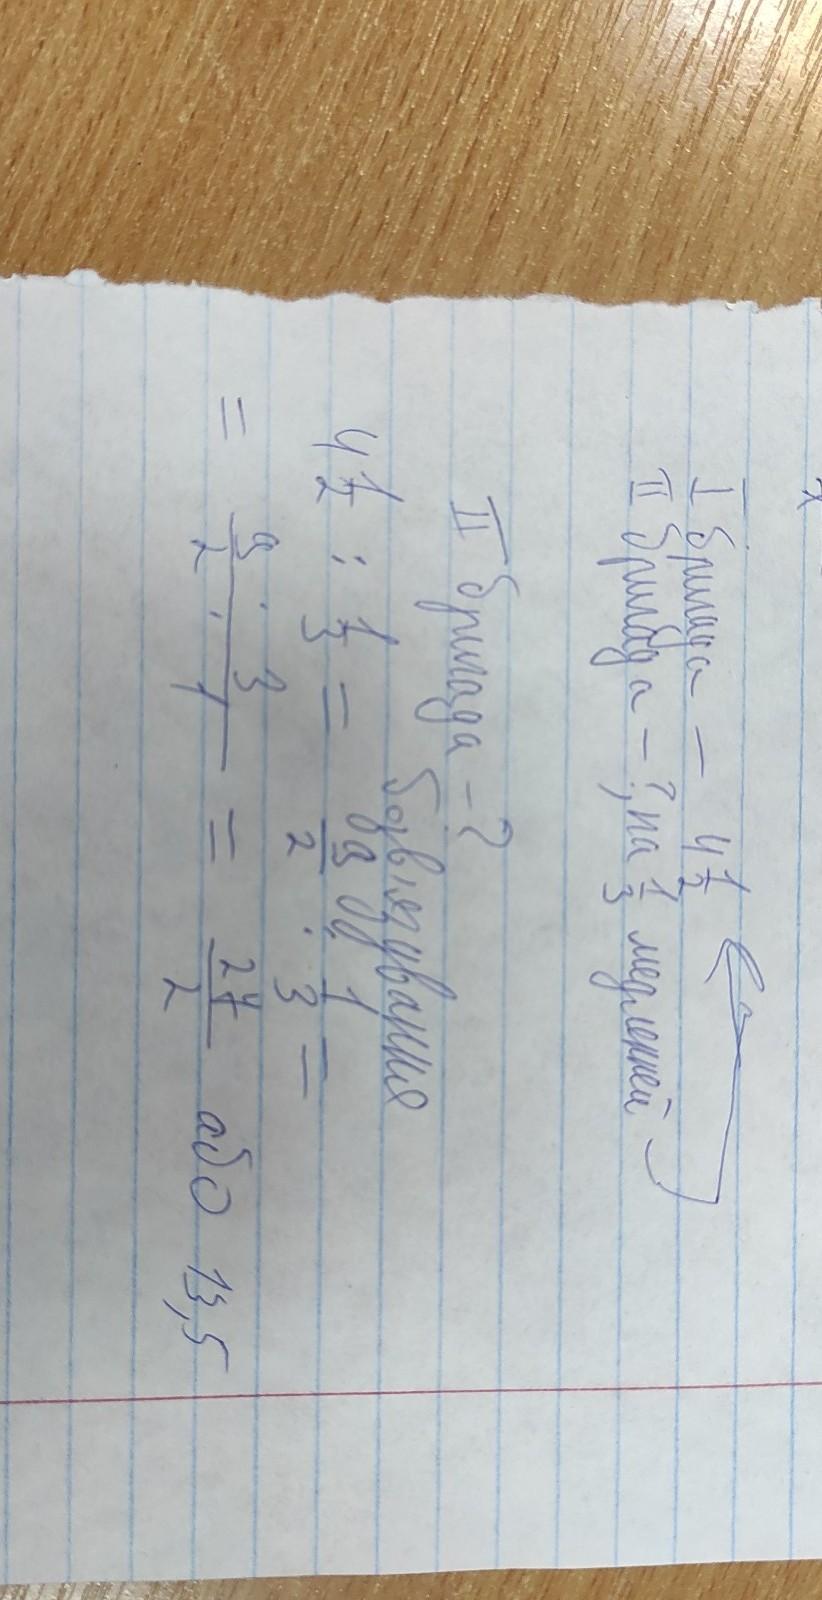 I бригада — 4 1/2
II бригада — ?, на 1/3 медленней
II бригада — ?
Розв'язування
4 1/2 : 1/3 = 9/2 : 1/3 =
= 9 · 3 / 2 · 1 = 27/2 або 13,5